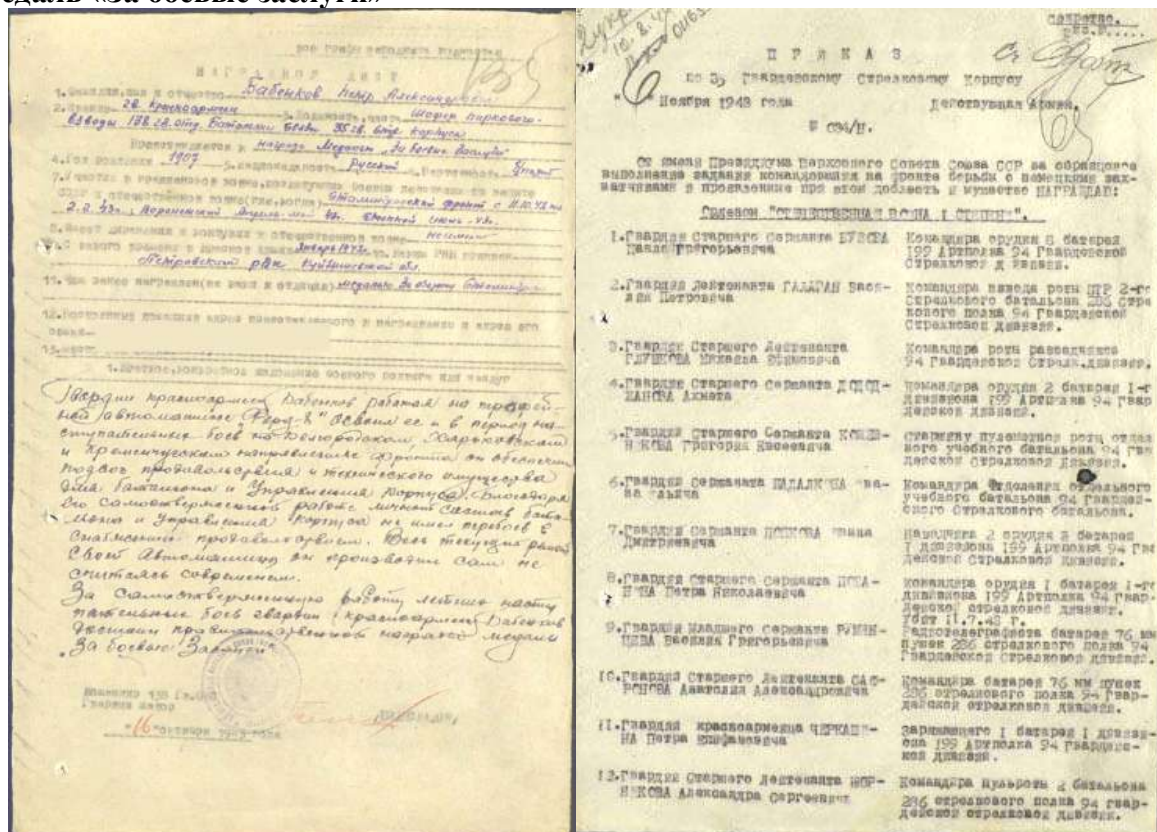 едаль «За боевые заслуги»
все графы заполнять полностью
НАГРАДНОЙ ЛИСТ
1. Фамилия, имя и отчество Бабенков Петр Александрович
2. Звание гв. Красноармеец 3. Должность, часть Шофер паркового
взвода 138 гв. отд. Батальон Связи 35 гв. стр. корпуса
Представляется к награде Медалью „За боевые Заслуги"
4. Год рождения 1907 5. Национальность Русский 6. Партийность б/парт
7. Участие в гражданской войне, последующих боевых действиях по защите
СССР и отечественной войне (где, когда) Сталинградский фронт с
2.2.43г., Воронежский Степной
8. Имеет ли ранения и контузии в отечественной войне не имеет
9. С какого времени в Красной армии Январь 1942г. 10. Каким РВК призван
Петровский рвк Куйбышевской обл.
11. Чем ранее награжден (за какие отличия) медалью За оборону Сталинграда
12. Постоянный домашний адрес представляемого к награждению и адрес его
семьи
1. Краткое, конкретное изложение боевого подвига или заслуг
Гвардии красноармеец Бабенков работая на трофей-
ной автомашине „Форд-8" освоил ее и в период на-
ступательных боев на Белгородском, Харьковском
и Кременчугском направлениях фронта он обеспечил
подвоз продовольствия и технического имущества
для батальона и Управления Корпуса. Благодаря
его самоотверженной работе личный состав бата-
льона и управления корпуса не имел перебоев в
снабжении продовольствием. Весь текущий ремонт
своей автомашины он производил сам не
считаясь со временем.
За самоотверженную работу в летние насту
пательные бои гвардии красноармеец Бабенков
достоин правительственной награды медали
„За боевые Заслуги"
Командир 138 Гв.
Гвардии майор
"16" октября 1943 года
Секретно.
ПРИКАЗ
по 35 Гвардейскому Стрелковому Корпусу
"6" Ноября 1943 года Действующая Армия.
№ 034/Н.
От имени Президиума Верховного Совета Союза ССР за образцовое
выполнение задания командования на фронте борьбы с немецкими зах-
ватчиками и проявленные при этом доблесть и мужество НАГРАЖДАЮ:
Орденом "ОТЕЧЕСТВЕННАЯ ВОЙНА I СТЕПЕНИ".
1. Гвардии Старшего Сержанта Командира орудия 8 батареи
Павла Григорьевича 199 Артполка 94 Гвардейской
Стрелковой дивизии.
2. Гвардии Лейтенанта ГАЛАГАН Васи- Командира взвода роты ПТР 2-го
лия Петровича стрелкового батальона 286 Стре
лкового полка 94 Гвардейской
Стрелковой дивизии.
3. Гвардии Старшего Лейтенанта Командира роты разведчиков
ГЛУШКОВА Михаила Ефимовича 94 Гвардейской Стрелк. дивизии.
4. Гвардии Старшего Сержанта Командира орудия 2 батареи 1-г
Ахмета дивизиона 199 Артполка 94 Гвар
дейской дивизии.
5. Гвардии Старшего Сержанта Старшину пулеметной роты отдел
Григория Евсеевича ного учебного батальона 94 Гва
дейской Стрелковой дивизии.
6. Гвардии Сержанта Ива- Командира Отделения отдельного
на Ильича учебного батальона 94 Гвардей-
ского Стрелкового батальона.
7. Гвардии Сержанта Ивана Наводчика 2 орудия 2 батареи
Дмитриевича 1 дивизиона 199 Артполка 94 Гва
дейской Стрелковой дивизии.
8. Гвардии Старшего Сержанта Командира орудия I батареи I-го
Петра Николаевича дивизиона 199 Артполка 94 Гвар-
дейской стрелковой дивизии.
Убит 11.7.43 г.
9. Гвардии Младшего Сержанта РУМЯН- Радиотелеграфиста батареи 76 мм
ЦЕВА Василия Григорьевича пушек 286 стрелкового полка 94
Гвардейской Стрелковой дивизии.
10. Гвардии Старшего Лейтенанта САФ- Командира батареи 76 мм пушек
РОНОВА Анатолия Александровича 286 стрелкового полка 94 Гвар-
дейской стрелковой дивизии.
11. Гвардии красноармейца ЧЕРКАШИ- Заряжающего I батареи I дивизи-
НА Петра Епифановича она 199 Артполка 94 Гвардейс-
кой дивизии.
12. Гвардии Старшего Лейтенанта Командира пульроты 2 батальона
Александра Сергеевича 286 стрелкового полка 94 гвар-
дейской стрелковой дивизии.